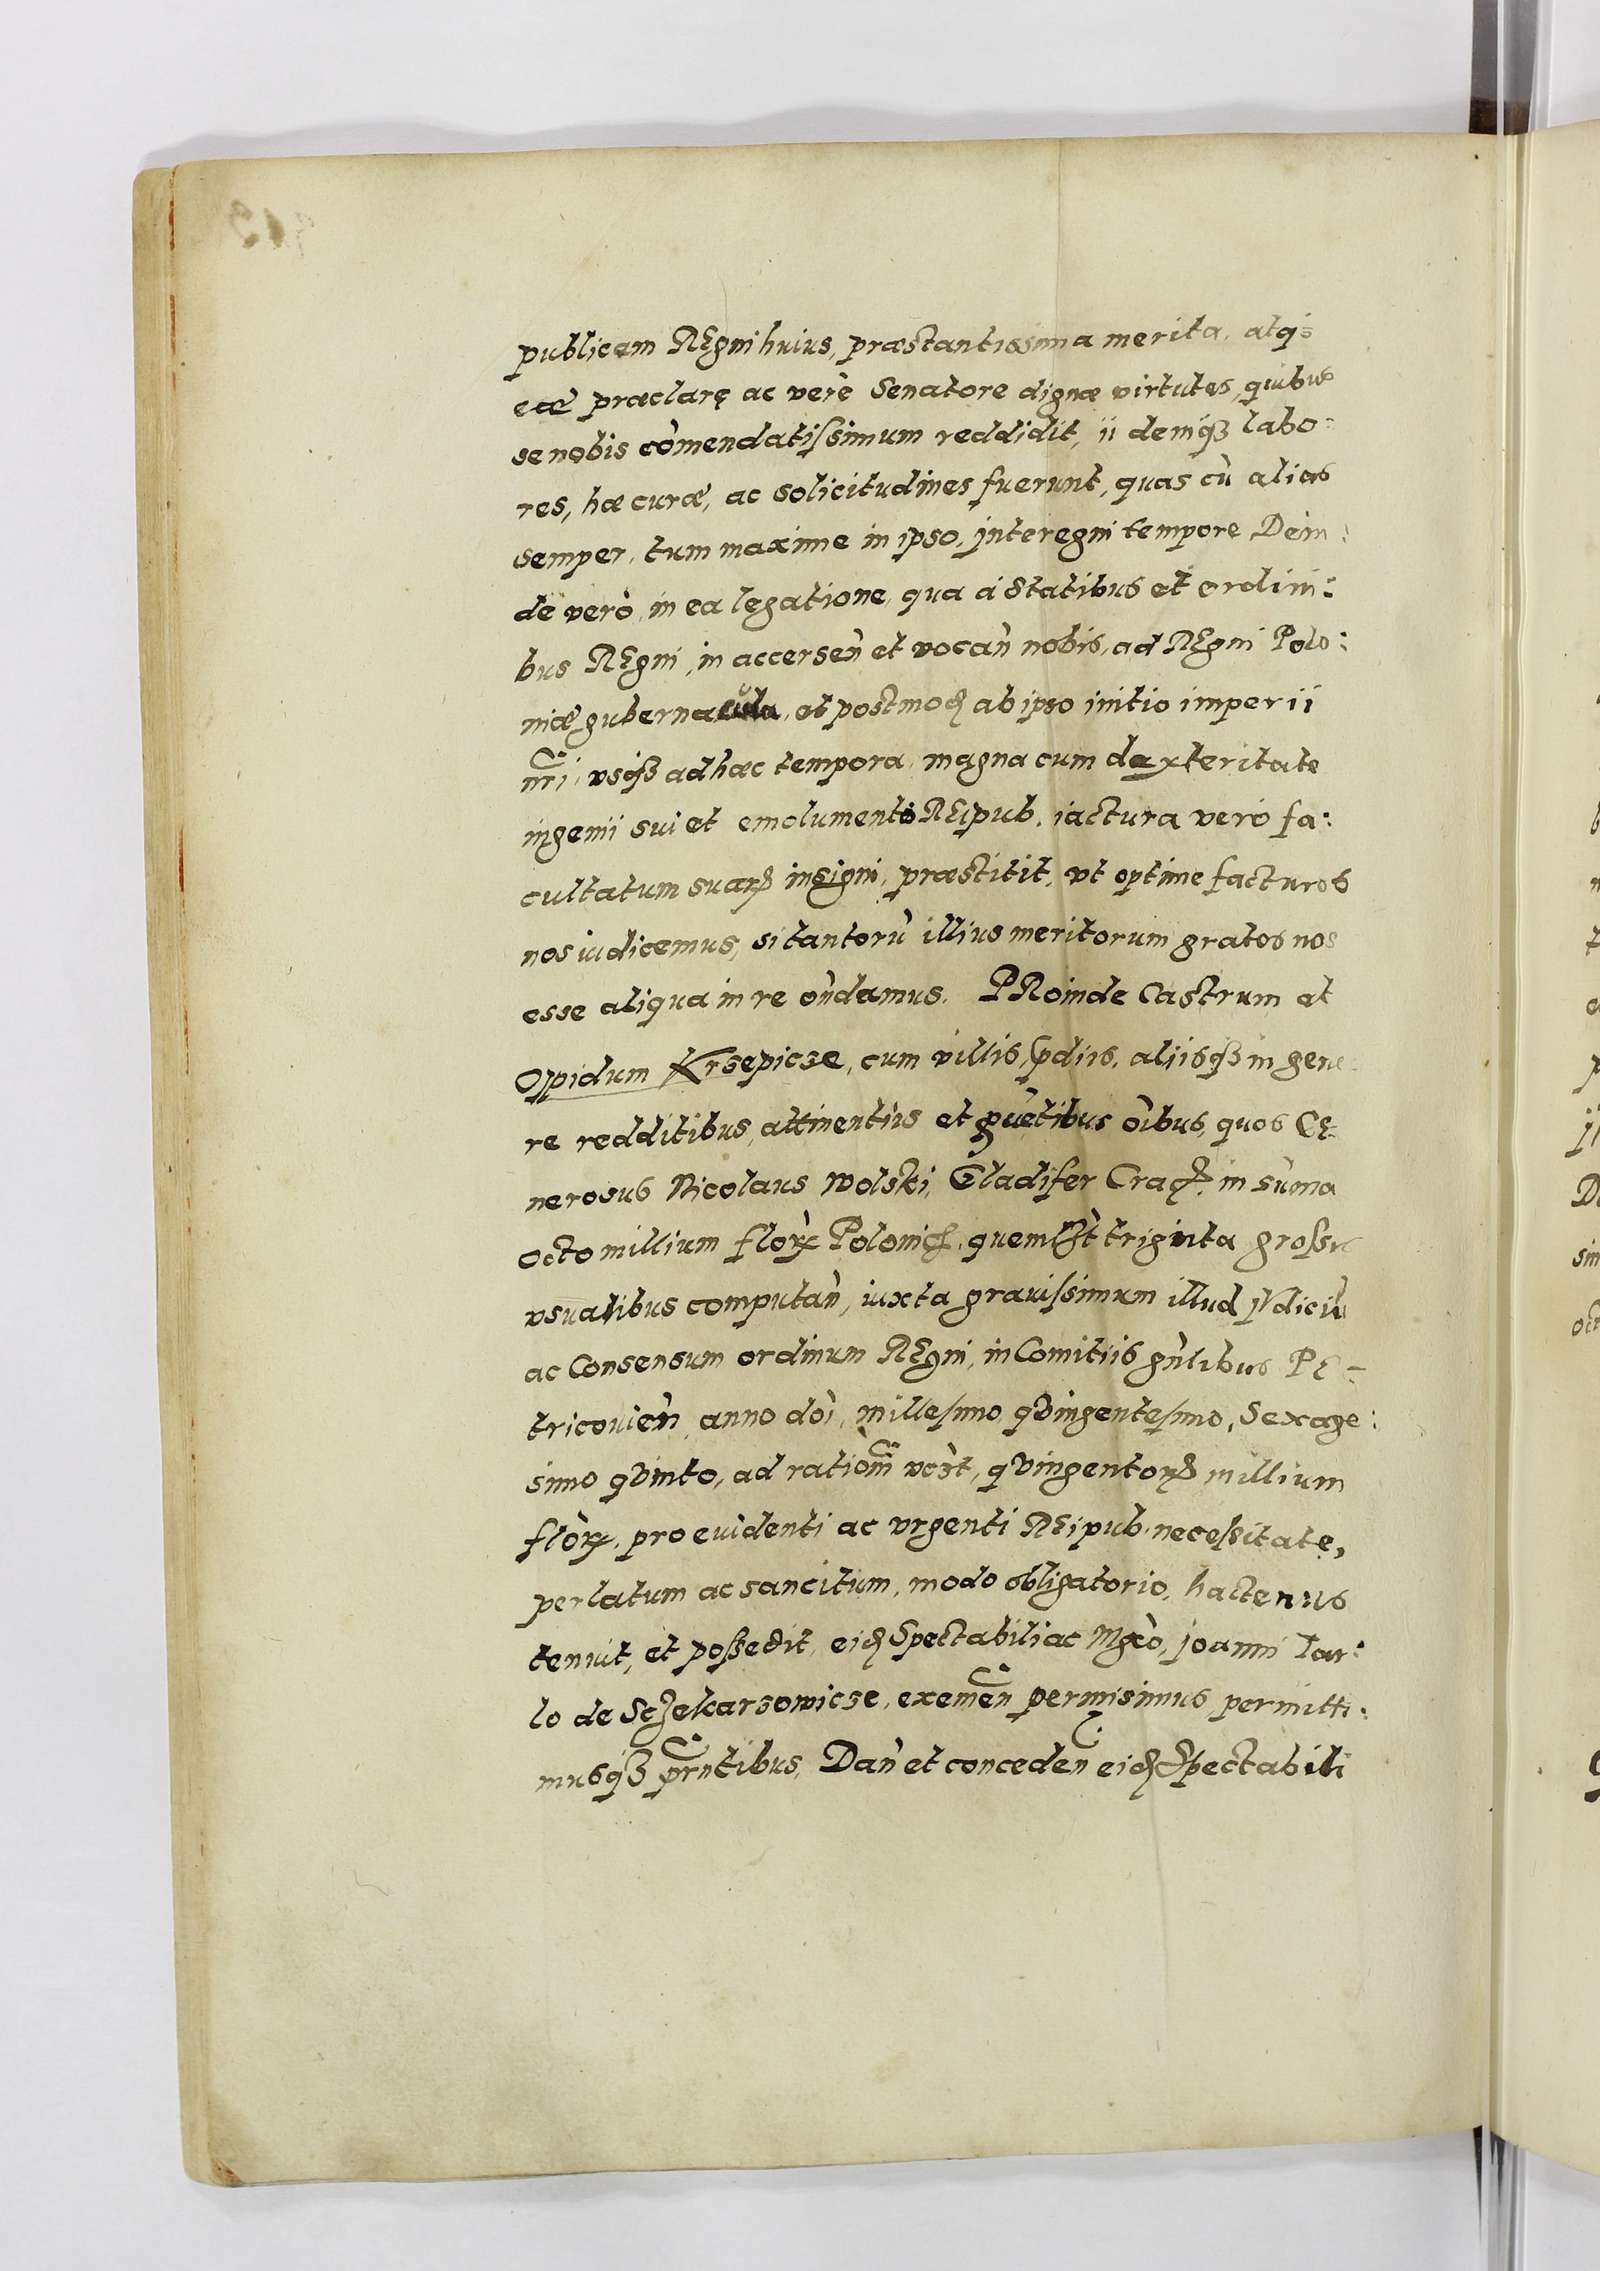 publicam REgni huius, præstantissima merita, atq̃
eæ præclarę ac verè Senatore dignæ virtutes, quibus
se nobis còmendatissimum reddidit, ii deniq̃ȝ labo:
res, hæ curæ, ac solicitudines fuerunt, quas cù alias
semper, tum maxime in ipso, jnteregni tempore, Dein:
de verò, in ea legatione, qua à Statibus et ordini:
bus REgni, in accersen̄ et vocan̄ nobis, ad REgni Polo:
niæ gubernacula, et postmoḍ ab ipso initio imperii
nr̃i, vsq̃ȝ ad hæc tempora, magna cum dexteritate
ingenii sui et emolumento REipub. iactura verò fa:
cultatum suarꝝ insigni, præstitit, vt optime facturos
nos iudicemus, si tantorù illius meritorum gratos nos
esse aliqua in re on̄damus. PRoinde Castrum et
Oppidum Krsepicse, cum villis, p̱diis, aliisq̃ȝ in gene
re redditibus, attinentiis et ꝓuētibus òibus, quos GE
nerosus Nicolaus Wolski, Gladifer Crac̃, in sùma
octo millium flòꝝ Polonic̃, quemlꝫt triginta grossis
vsualibus computan̄, iuxta grauissimum illud jVdiciù
ac Consensum ordinum REgni, in Comitiis gǹlibus PE-
tricouien̄, anno doì, millesimo, qVingentesimo, Sexage:
simo qVinto, ad ratiòm̃ vcꝫt, qVingentorꝝ millium
flòꝝ, pro euidenti ac vrgenti REipub. necessitate,
perlatum ac sancitum, modo obligatorio, hactenus
tenuit, et possedit, eiḍ Spectabili ac Mg̃cò, joanni Tar:
lo de Sczekarsowicse, exemen̄ permisimus, permitti:
musq̃ȝ pr̃ntibus, Dan̄ et conceden̄ eiḍ Spectabili